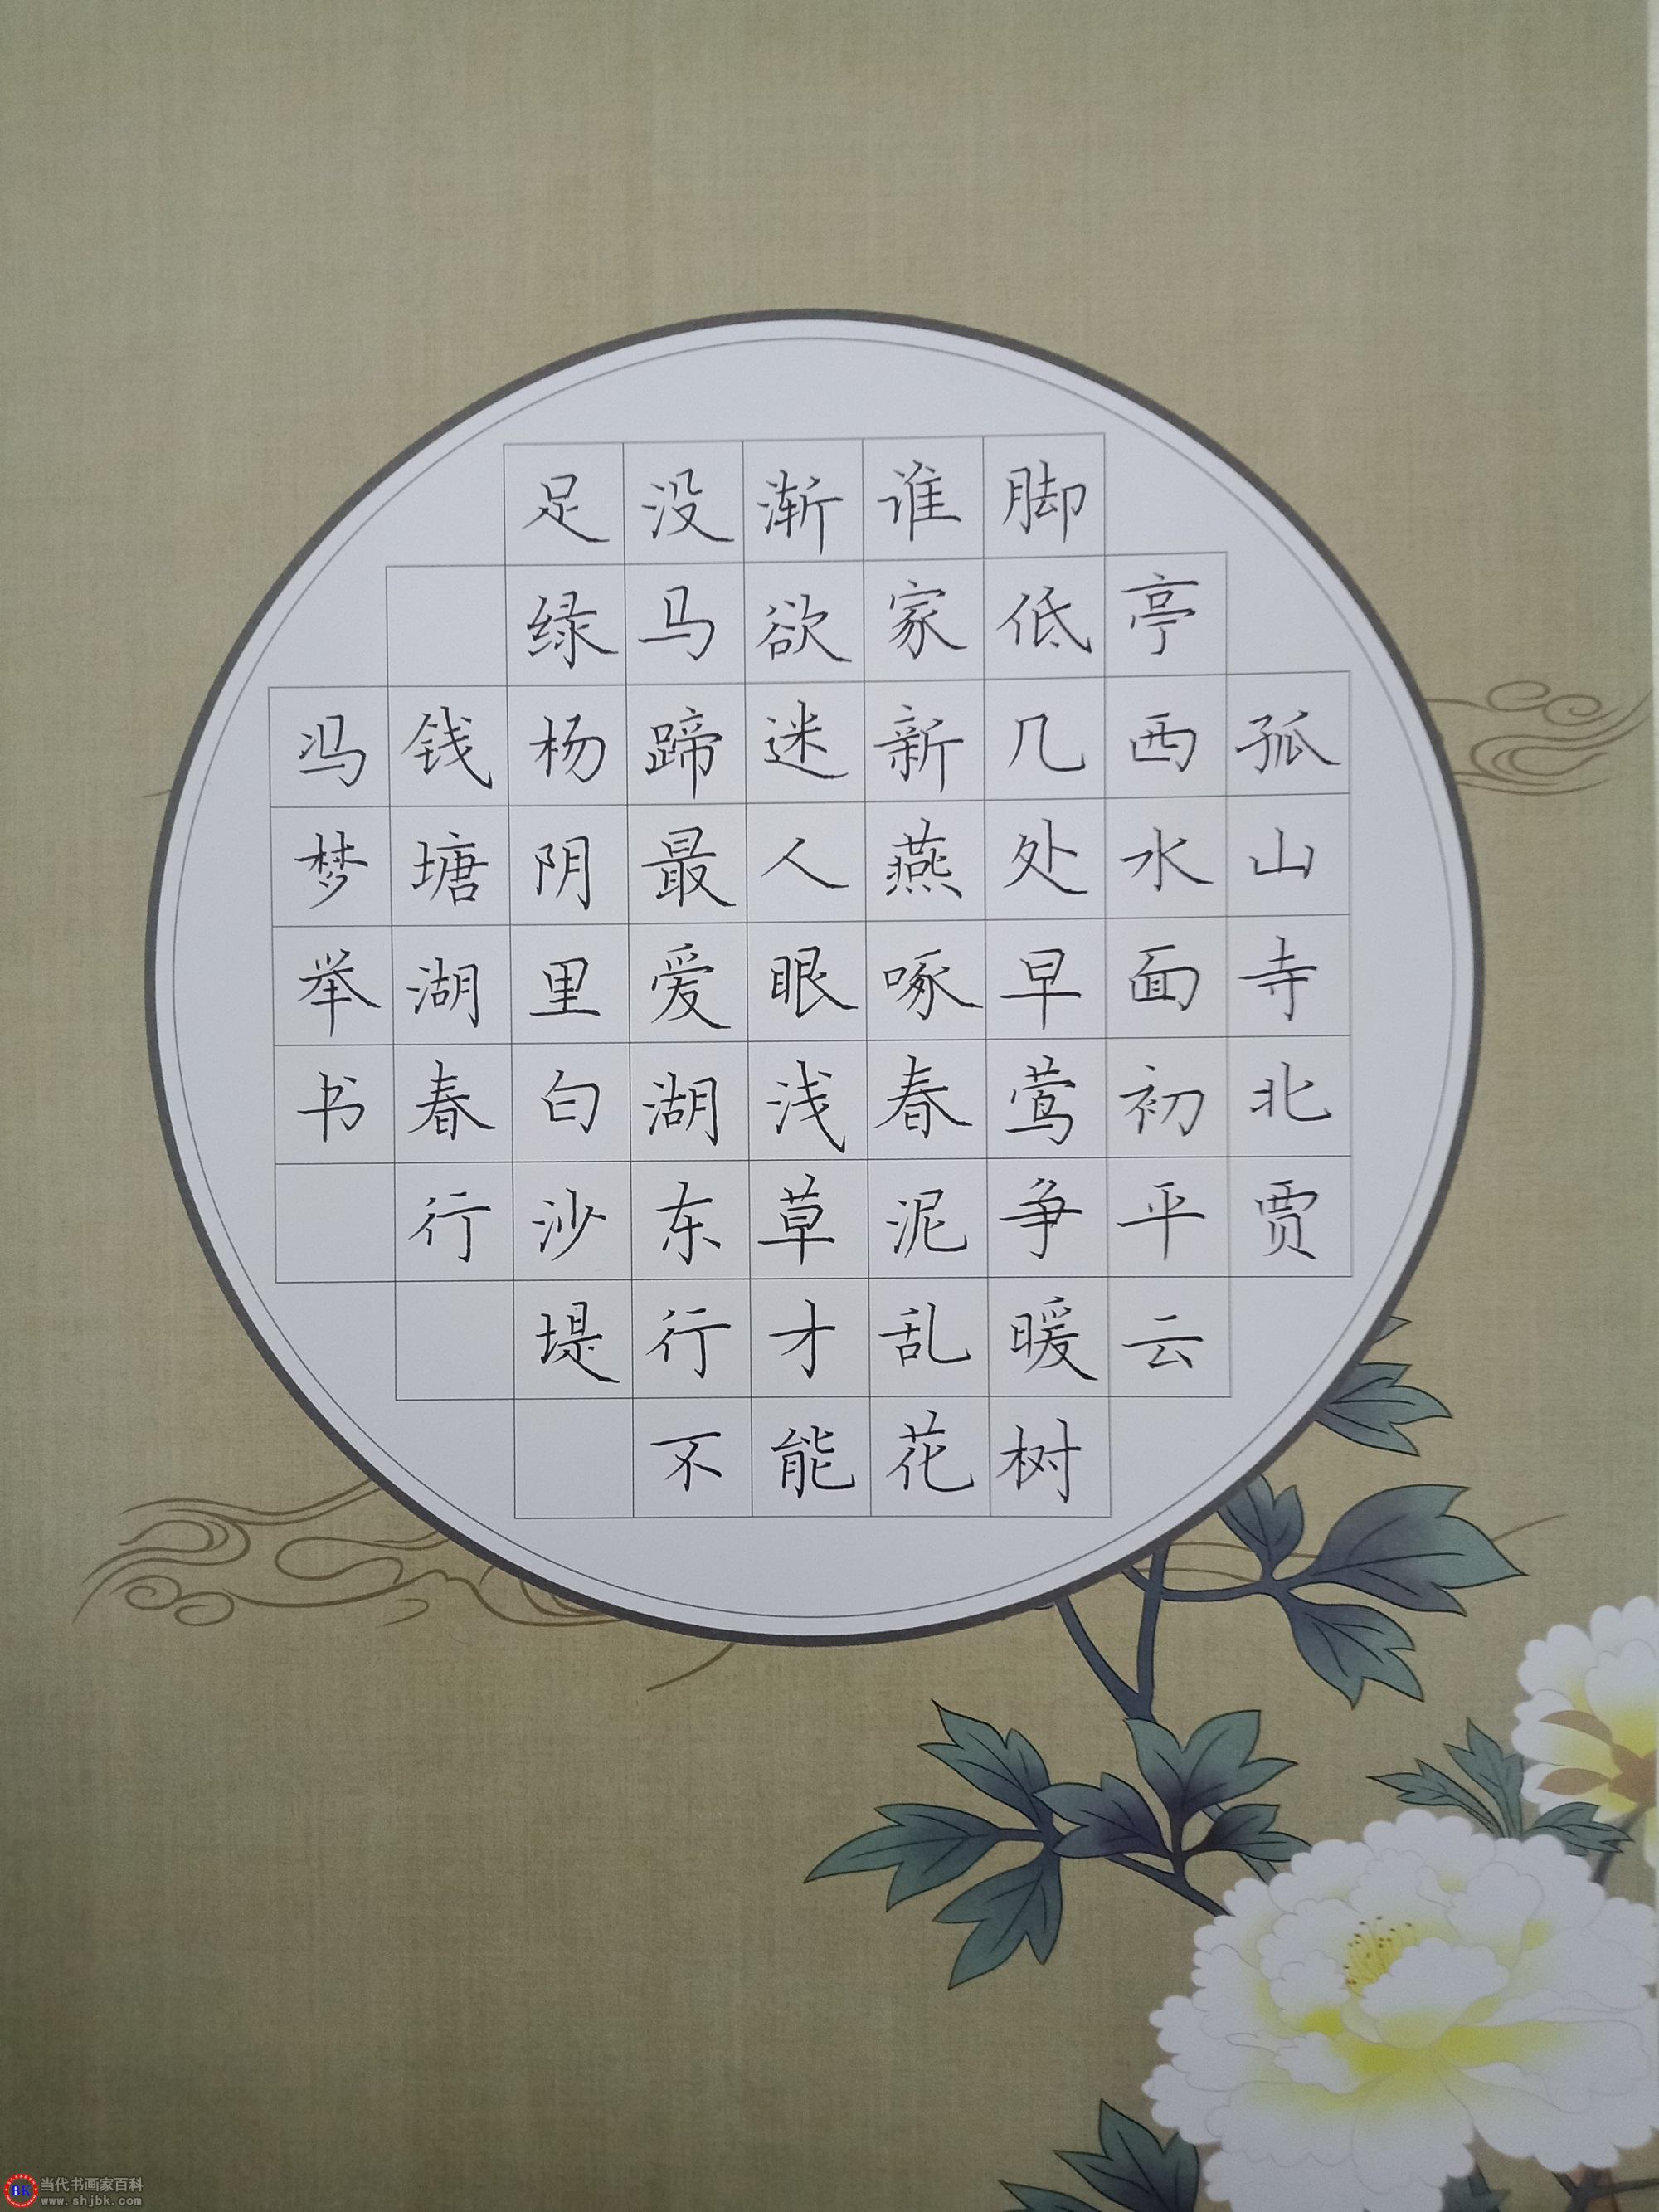 孤山寺北贾
亭西水面初平云
脚低几处早莺争暖树
谁家新燕啄春泥乱花
渐欲迷人眼浅草才能
没马蹄最爱湖东行不
足绿杨阴里白沙堤
钱塘湖春行
冯梦举书
当代书画家百科
www.shjbk.com
BK